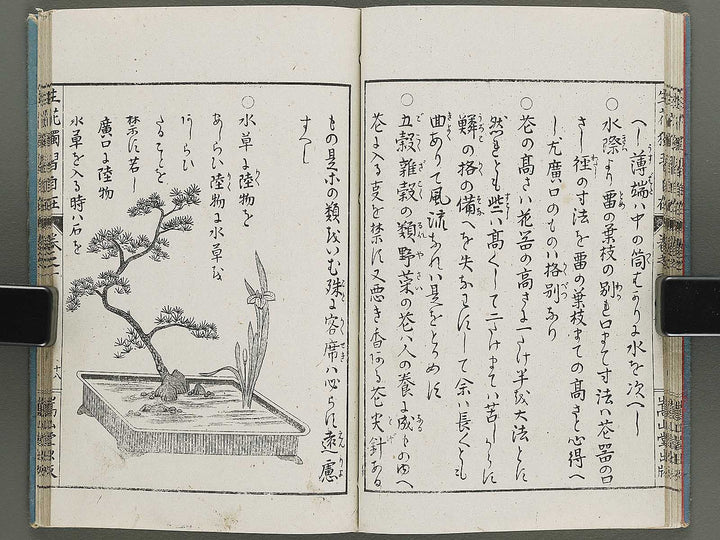 へし薄端ハ中の筒むかりに水を次へし
○水際より留の葉枝の別れ口まて寸法ハ花器の口
さし径の寸法を留の葉枝まての高さと心得へ
し尤廣口のものハ格別なり
○花の高さハ花器の高さに一たけ半を大法とす
然れとも些ハ高くして二たけまてハ苦しからす
鱗の格の備へを失なハすにして余ハ長くとも
曲ありて風流なれハ是をとかめす
○五穀雑穀の類野菜の花ハ人の養に成もの由へ
花に入る事を禁す又悪き香ある花尖針ある
もの是ホの類をいむ殊に客席ハ心らす遠慮
すへし
○水草に陸物を
あしらひ陸物に水草を
あしらひ
さることを
禁す若し
廣口に陸物
水草を入る時ハ石を
生花獨習自在 巻之二
十八
嵩山堂出版